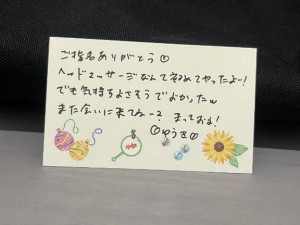 ご指名ありがとう☺
ヘッドマッサージなんて初めてやったよー!
でも気持ちよさそうでよかったw
また会いに来てねー? まっておる!
ゆうき